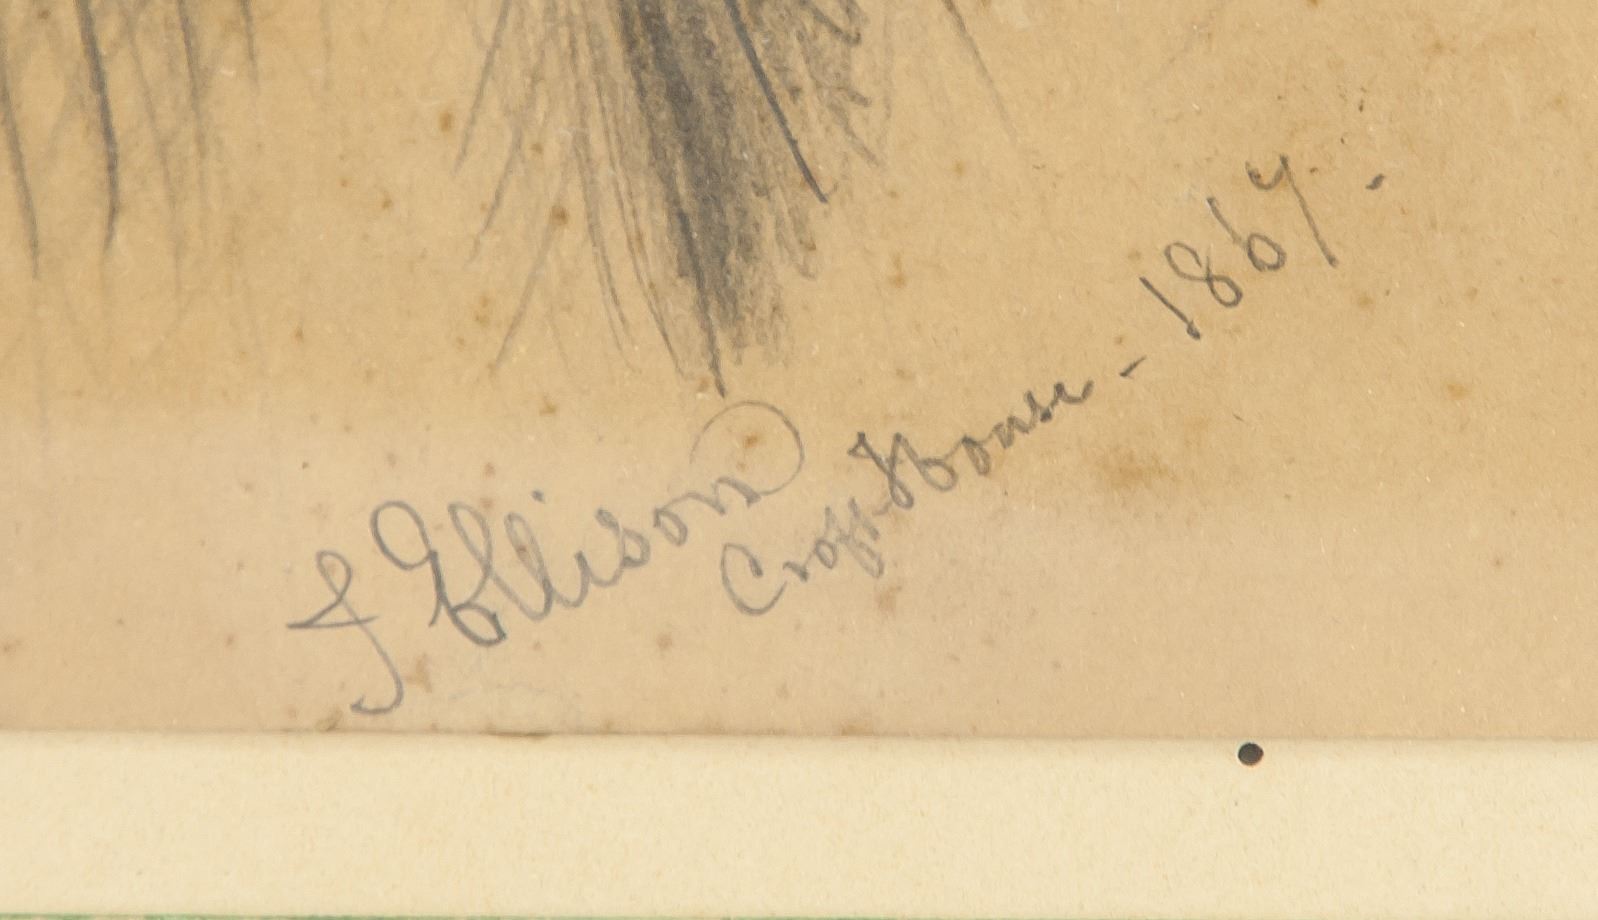 J Ellison
Croft House - 1867.